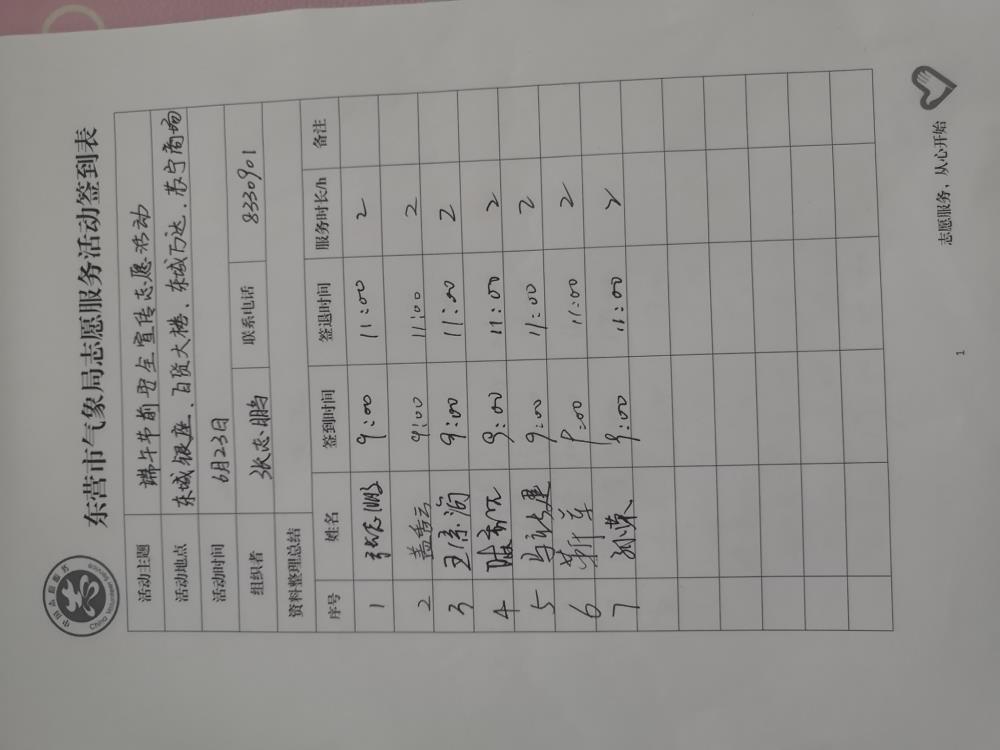 中国志愿服务
China Volunteer Service
东营市气象局志愿服务活动签到表
活动主题 端午节前安全宣传志愿活动
活动地点 东城银座、百货大楼、东城万达、苏宁商场
活动时间 6月23日
组织者 张志鹏 联系电话 8330901
资料整理总结
序号 姓名 签到时间 签退时间 服务时长/h 备注
1 张志鹏 9:00 11:00 2
2 盖香云 9:00 11:00 2
3 9:00 11:00 2
4 9:00 11:00 2
5 9:00 11:00 2
6 靳军 9:00 11:00 2
7 孙荣 9:00 11:00 2
志愿服务，从心开始
1